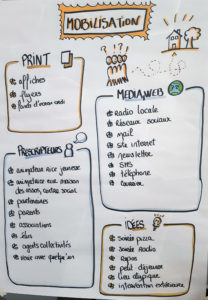 MOBILISATION
PRINT
affiches
flyers
fonds d'écran ordi
MEDIA/WEB
radio locale
Réseaux sociaux
mail
site internet
newsletter
SMS
téléphone
PRESCRIPTEURS
animateur·rice jeunesse
animateur·rice maison
des assos, centre social
partenaires
parents
associations
élus
agents collectivités
venir avec quelqu'un
IDÉES
soirée pizza
soirée Radio
Repas
petit déjeuner
lieu atypique
intervention extérieure